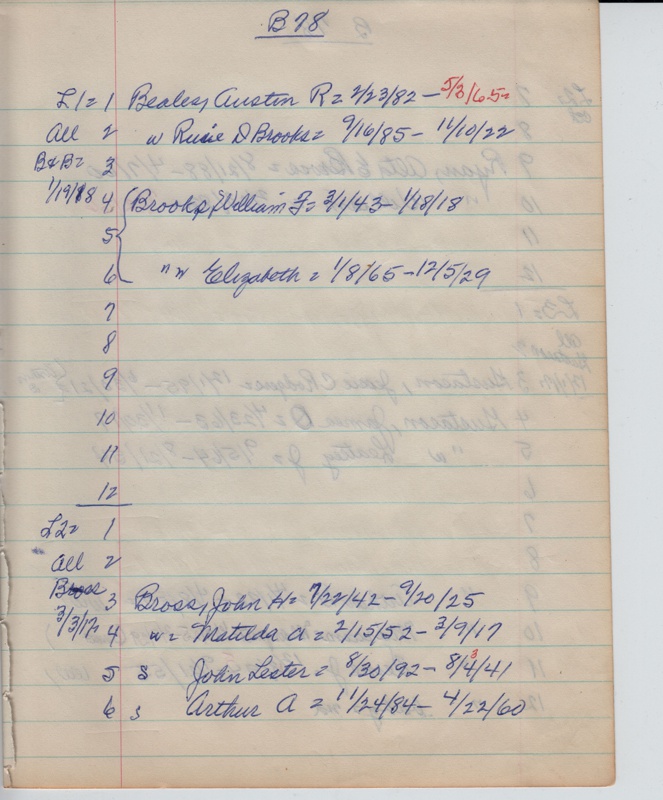 B 78
L1 = 1 Beales, Austin R = 2/23/82 – 5/3/65 =
All 2 w Rusie D Brooks = 9/16/85 – 11/10/22
B & B = 3
1/19/18 4 Brooks, William F = 3/1/43 – 1/18/18
5
6 " w Elizabeth = 1/8/65 – 12/5/29
7
8
9
10
11
12
L2 = 1
All 2
Bross 3 Bross, John H = 7/22/42 – 9/20/25
3/3/17 = 4 w = Matilda A = 2/15/52 – 3/9/17
5 s John Lester = 8/30/92 – 8/4/41
6 s Arthur A = 11/24/84 – 4/22/60